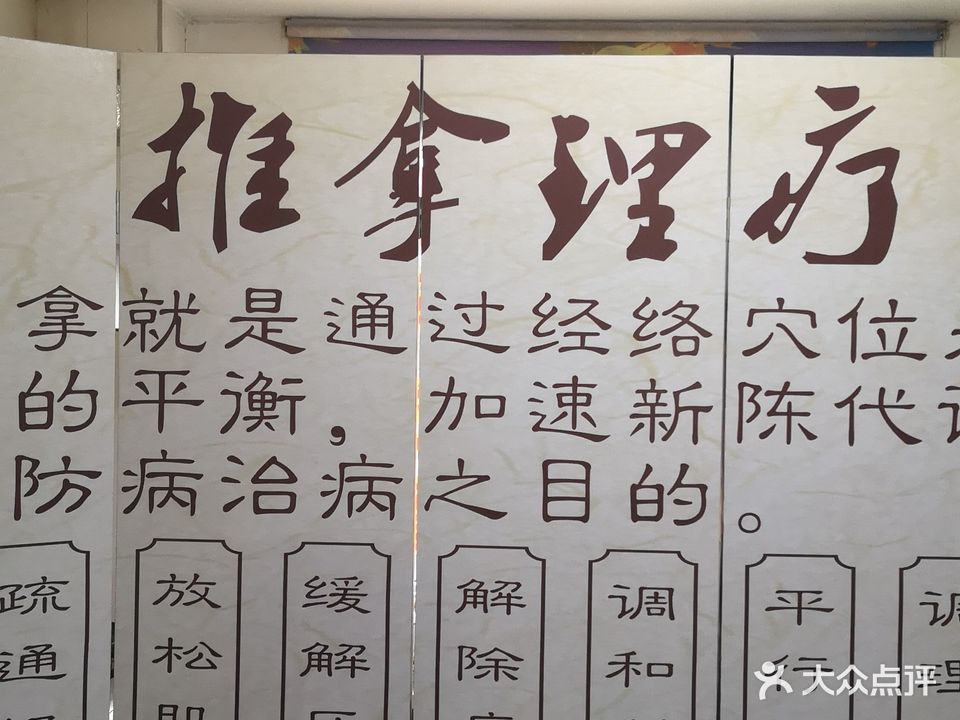 推拿理疗
拿就是通过经络穴位
的平衡，加速新陈代谢
防病治病之目的。
疏通
放松
缓解
解除
调和
平行
调理
大众点评